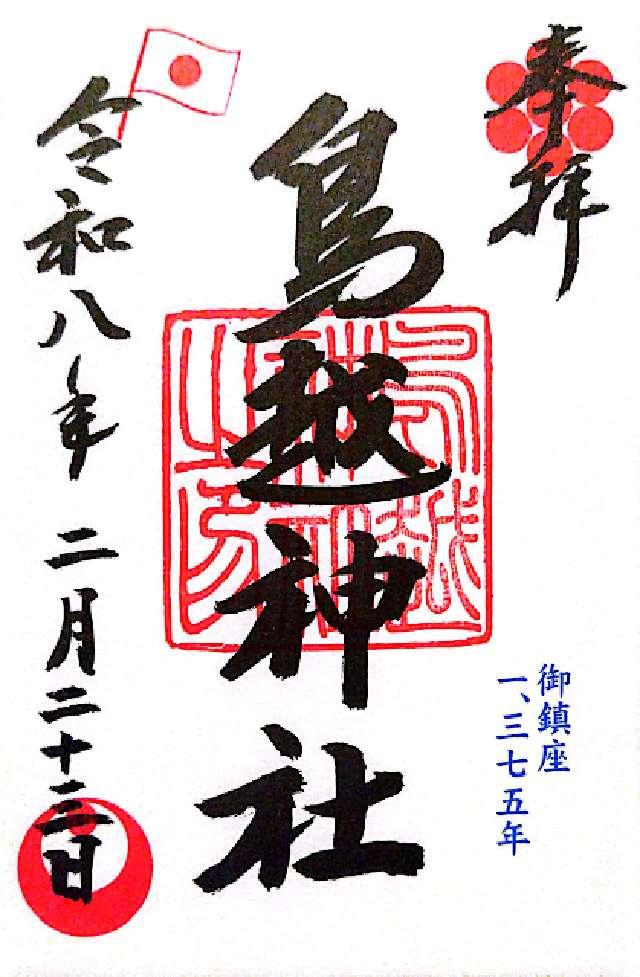 奉拝
鳥越神社
鳥越神社之印
御鎮座
一、三七五年
令和八年 二月二十三日